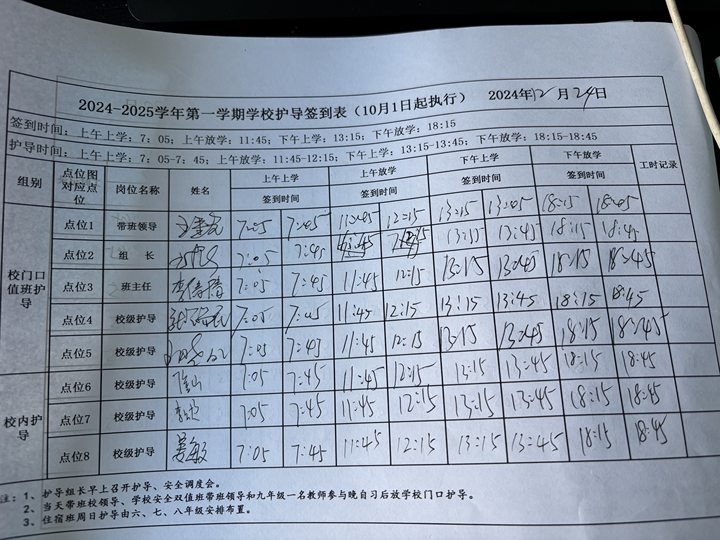 2024-2025学年第一学期学校护导签到表（10月1日起执行） 2024年12月24日
签到时间：上午上学：7：05；上午放学：11:45；下午上学：13:15；下午放学：18:15
护导时间：上午上学：7：05-7：45；上午放学：11:45-12:15；下午上学：13:15-13:45；下午放学：18:15-18:45
组别 点位图对应点位 岗位名称 姓名 上午上学 上午放学 下午上学 下午放学 工时记录
签到时间 签到时间 签到时间 签到时间
校门口值班护导
点位1 带班领导 7:05 7:45 11:45 12:15 13:15 13:45 18:15 18:45
点位2 组 长 7:05 7:45 11:45 12:15 13:15 13:45 18:15 18:45
点位3 班主任 7:05 7:45 11:45 12:15 13:15 13:45 18:15 18:45
点位4 校级护导 7:05 7:45 11:45 12:15 13:15 13:45 18:15 18:45
点位5 校级护导 7:05 7:45 11:45 12:15 13:15 13:45 18:15 18:45
校内护导
点位6 校级护导 7:05 7:45 11:45 12:15 13:15 13:45 18:15 18:45
点位7 校级护导 7:05 7:45 11:45 12:15 13:15 13:45 18:15 18:45
点位8 校级护导 晏敏 7:05 7:45 11:45 12:15 13:15 13:45 18:15 18:45
注：1、护导组长早上召开护导、安全调度会。
2、当天带班校领导、学校安全双值班带班领导和九年级一名教师参与晚自习后放学校门口护导。
3、住宿班周日护导由六、七、八年级安排布置。